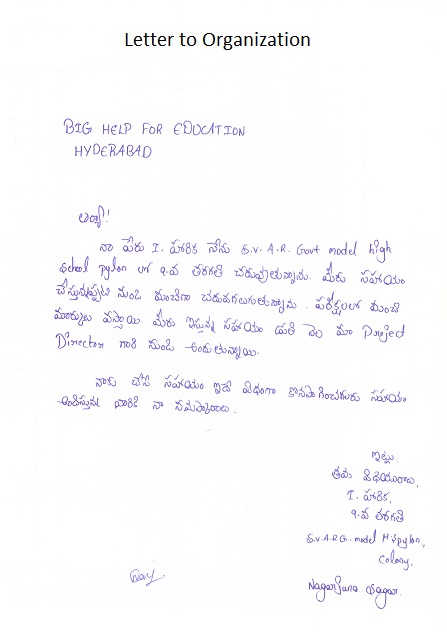 Letter to Organization
BIG HELP FOR EDUCATION
HYDERABAD
ఆర్యా!
నా పేరు I. హారిక నేను S.V.A.R. Govt model high
school pylon లో 9.వ తరగతి చదువుతున్నాను. మీరు సహాయం
చేస్తున్నప్పటి నుండి మంచిగా చదువగలుగుతున్నాను. పరీక్షలలో మంచి
మార్కులు వస్తాయి మీరు ఇస్తున్న సహాయం ప్రతి నెల మా Project
Director గారి నుండి అందుతున్నాయి.
నాకు చేసే సహాయం ఇదే విధంగా కొనసాగించగలరు సహాయం
అందిస్తున్న వారికి నా నమస్కారాలు.
ఇట్లు.
తమ విధేయురాలు,
I. హారిక,
9.వ తరగతి
S.V.A.RG. model H S pylon,
Colony,
Nagarjuna sagar.